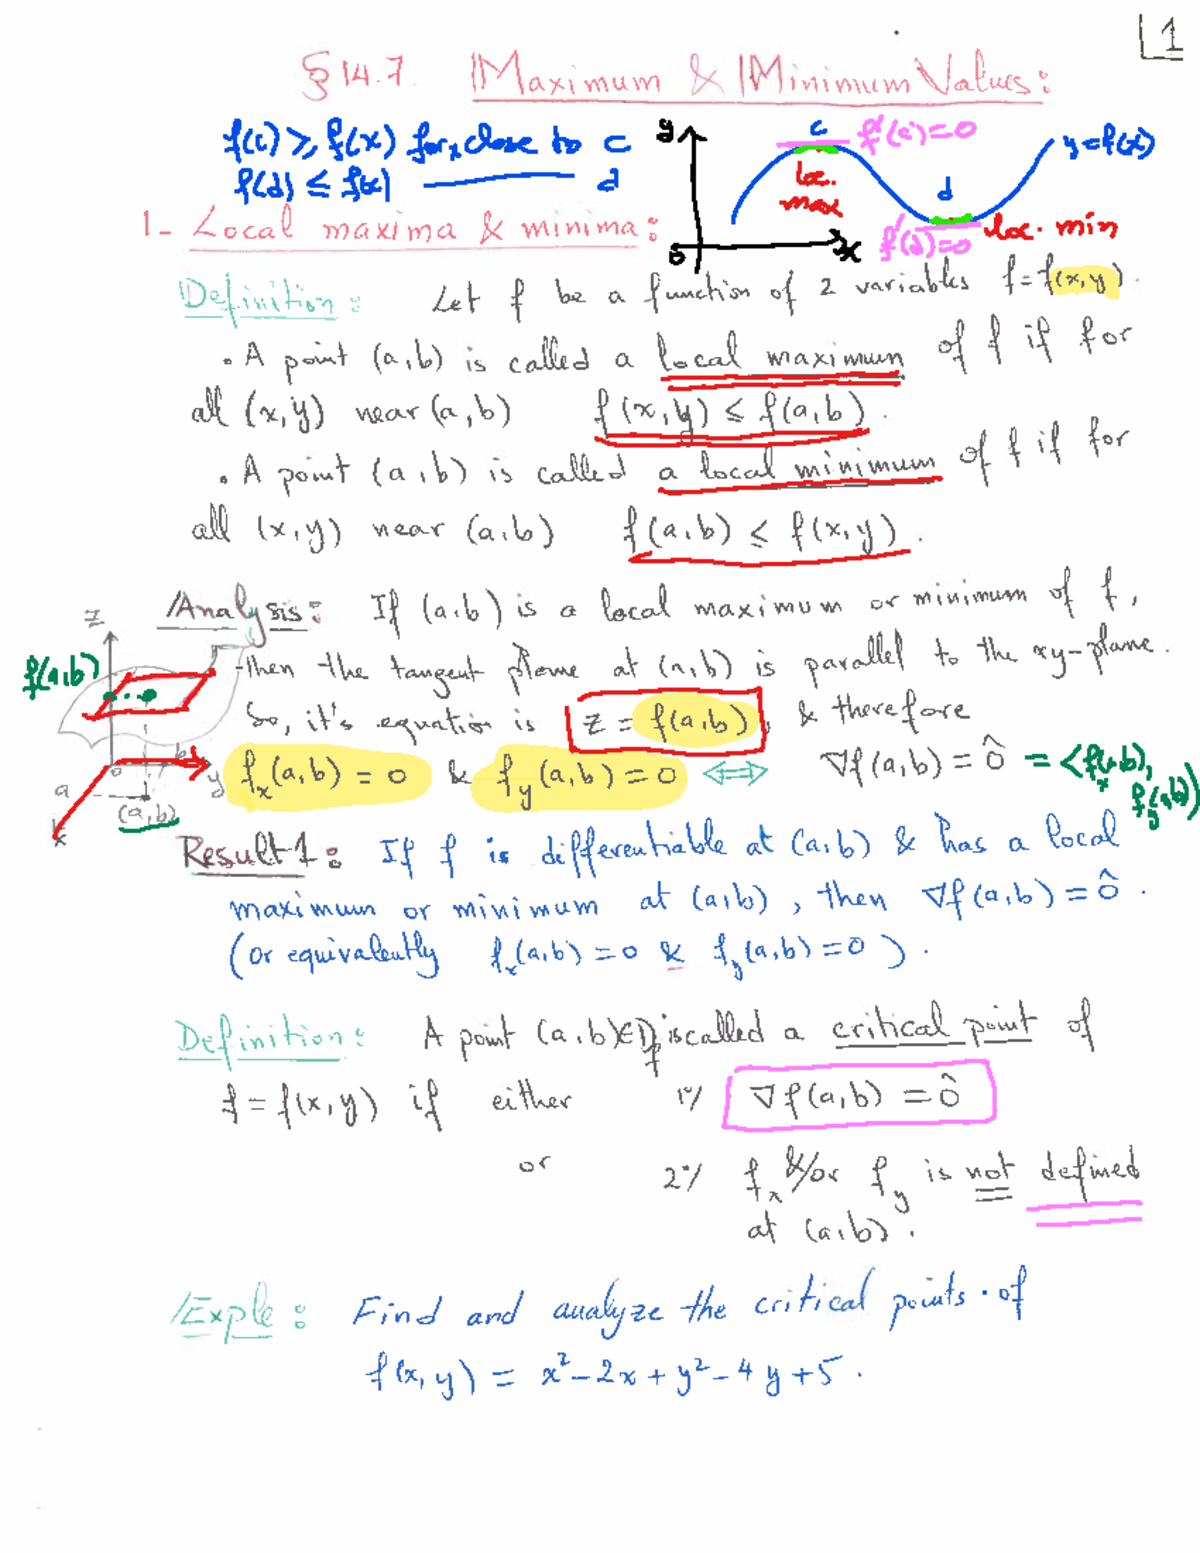 1
§ 14.7. Maximum & Minimum Values:
f(c) ≥ f(x) for x close to c
f(d) ≤ f(x) ——— d
y
c
f'(c)=0
y=f(x)
loc.
max
d
f'(d)=0
loc. min
o
x
1- Local maxima & minima:
Definition: Let f be a function of 2 variables f=f(x,y).
• A point (a,b) is called a local maximum of f if for
all (x,y) near (a,b) f(x,y) ≤ f(a,b).
• A point (a,b) is called a local minimum of f if for
all (x,y) near (a,b) f(a,b) ≤ f(x,y).
Analysis: If (a,b) is a local maximum or minimum of f,
then the tangent plane at (a,b) is parallel to the xy-plane.
So, it's equation is z = f(a,b), & therefore
f_x(a,b) = 0 & f_y(a,b) = 0 ⟺ ∇f(a,b) = ô = <f_x(a,b), f_y(a,b)>
z
f(a,b)
o
b
y
a
(a,b)
x
Result 1: If f is differentiable at (a,b) & has a local
maximum or minimum at (a,b), then ∇f(a,b) = ô.
(or equivalently f_x(a,b) = 0 & f_y(a,b) = 0).
Definition: A point (a,b)∈D_f is called a critical point of
f = f(x,y) if either 1°/ ∇f(a,b) = ô
or 2°/ f_x &/or f_y is not defined
at (a,b).
Exple: Find and analyze the critical points of
f(x,y) = x² - 2x + y² - 4y + 5.